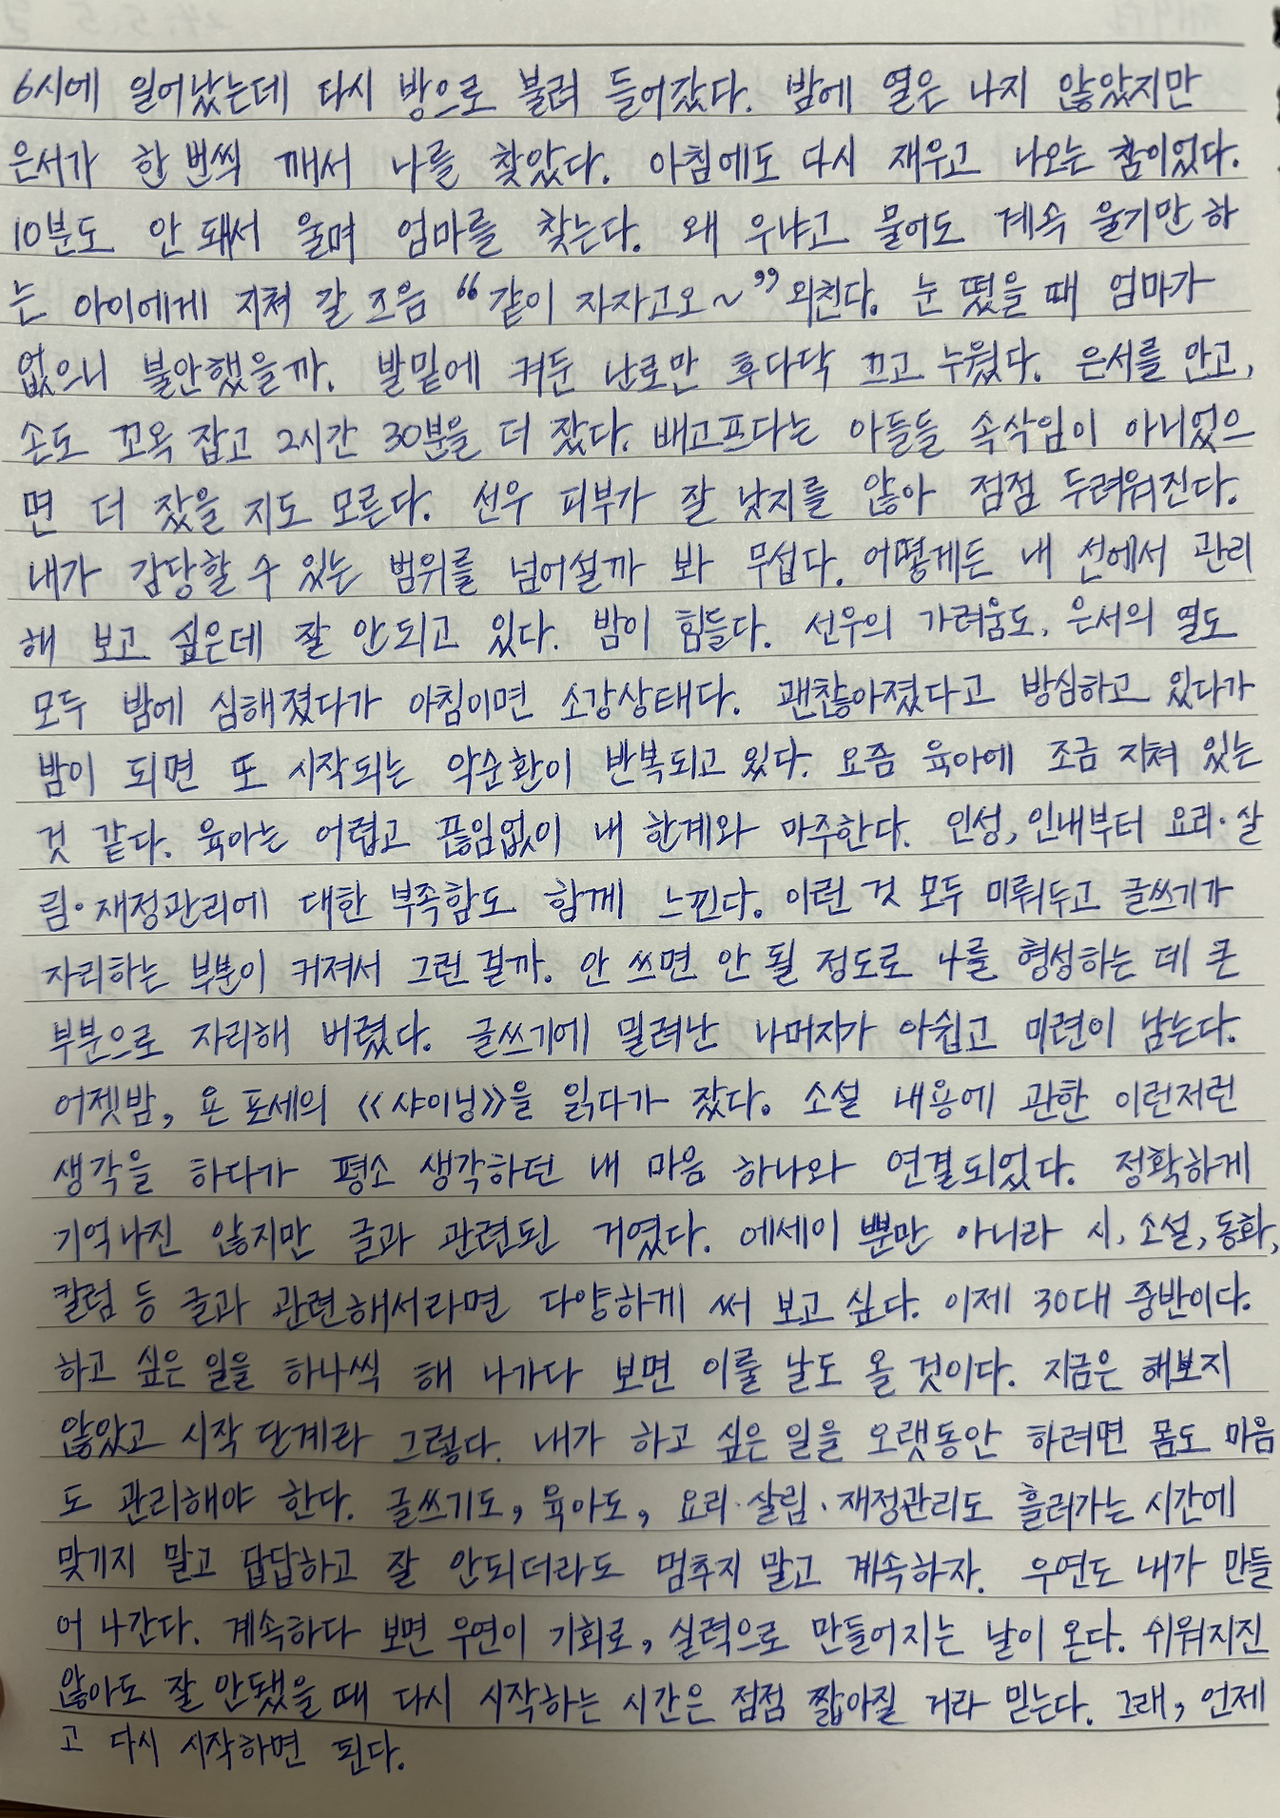 6시에 일어났는데 다시 방으로 불려 들어갔다. 밤에 열은 나지 않았지만
은서가 한 번씩 깨서 나를 찾았다. 아침에도 다시 재우고 나오는 참이었다.
10분도 안 돼서 울며 엄마를 찾는다. 왜 우냐고 물어도 계속 울기만 하
는 아이에게 지쳐 갈 즈음 “같이 자자고오~” 외친다. 눈 떴을 때 엄마가
없으니 불안했을까. 발밑에 켜둔 난로만 후다닥 끄고 누웠다. 은서를 안고,
손도 꼬옥 잡고 2시간 30분을 더 잤다. 배고프다는 아들들 속삭임이 아니었으
면 더 잤을 지도 모른다. 선우 피부가 잘 낫지를 않아 점점 두려워진다.
내가 감당할 수 있는 범위를 넘어설까 봐 무섭다. 어떻게든 내 선에서 관리
해 보고 싶은데 잘 안되고 있다. 밤이 힘들다. 선우의 가려움도, 은서의 열도
모두 밤에 심해졌다가 아침이면 소강상태다. 괜찮아졌다고 방심하고 있다가
밤이 되면 또 시작되는 악순환이 반복되고 있다. 요즘 육아에 조금 지쳐 있는
것 같다. 육아는 어렵고 끊임없이 내 한계와 마주한다. 인성, 인내부터 요리·살
림·재정관리에 대한 부족함도 함께 느낀다. 이런 것 모두 미뤄두고 글쓰기가
자리하는 부분이 커져서 그런 걸까. 안 쓰면 안 될 정도로 나를 형성하는 데 큰
부분으로 자리해 버렸다. 글쓰기에 밀려난 나머지가 아쉽고 미련이 남는다.
어젯밤, 욘 포세의 《샤이닝》을 읽다가 잤다. 소설 내용에 관한 이런저런
생각을 하다가 평소 생각하던 내 마음 하나와 연결되었다. 정확하게
기억나진 않지만 글과 관련된 거였다. 에세이 뿐만 아니라 시, 소설, 동화,
칼럼 등 글과 관련해서라면 다양하게 써 보고 싶다. 이제 30대 중반이다.
하고 싶은 일을 하나씩 해 나가다 보면 이룰 날도 올 것이다. 지금은 해보지
않았고 시작 단계라 그렇다. 내가 하고 싶은 일을 오랫동안 하려면 몸도 마음
도 관리해야 한다. 글쓰기도, 육아도, 요리·살림·재정관리도 흘러가는 시간에
맞기지 말고 답답하고 잘 안되더라도 멈추지 말고 계속하자. 우연도 내가 만들
어 나간다. 계속하다 보면 우연이 기회로, 실력으로 만들어지는 날이 온다. 쉬워지진
않아도 잘 안됐을 때 다시 시작하는 시간은 점점 짧아질 거라 믿는다. 그래, 언제
고 다시 시작하면 된다.